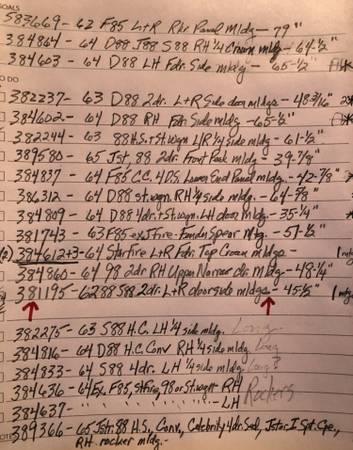 GOALS
583669 - 62 F85 L+R Rkr Panel Mldg - 79"
384864 - 64 D88 J88 S88 RH 1/4 Crown mldg - 64-1/2"
384603 - 64 D88 LH Fdr. Side mldg - 65-1/2"
TO DO
382237 - 63 D88 2dr. L+R Side door mldgs - 48-3/16"
384602 - 64 D88 RH Fdr Side Mldg - 65-1/2"
382244 - 63 88 H.S.+St.wgn L/R 1/4 side mldg - 61-1/2"
389580 - 65 Jst. 88 2dr. Front Pack mldg - 39-7/8"
384837 - 64 F85 C.C. 4DS. Lower End Panel mldg - 42-7/8"
386312 - 64 D88 st.wgn RH 1/4 side mldg - 64-7/8"
384809 - 64 D88 4dr.+St.wgn. LH door mldg - 35-1/4"
381743 - 63 F85 ex. Jfire - Fender Spear Mldg. - 51-1/2"
(2) 384612+3 - 64 StarFire L+R Fdr. Top Crown mldg - 1
384860 - 64 98 2dr RH Upper Narrow dr. Mldg - 48-1/4"
381195 - 62 88 S88 2dr. L+R door side mldgs - 45-1/2" 1
382275 - 63 S88 H.C. LH 1/4 side mldg. Long
384816 - 64 D88 H.C. Conv RH 1/4 side mldg Long
384833 - 64 S88 4dr. LH 1/4 side mldg. Long?
384636 - 64 Ex. F85, Stfire, 98 or St.wgn - RH Rockers
384637 - " " " " " - LH
389366 - 65 Jstr. 88 H.S., Conv., Celebrity 4dr. Sed., Jstar I Spt. Cpe.,
RH rocker mldg. -